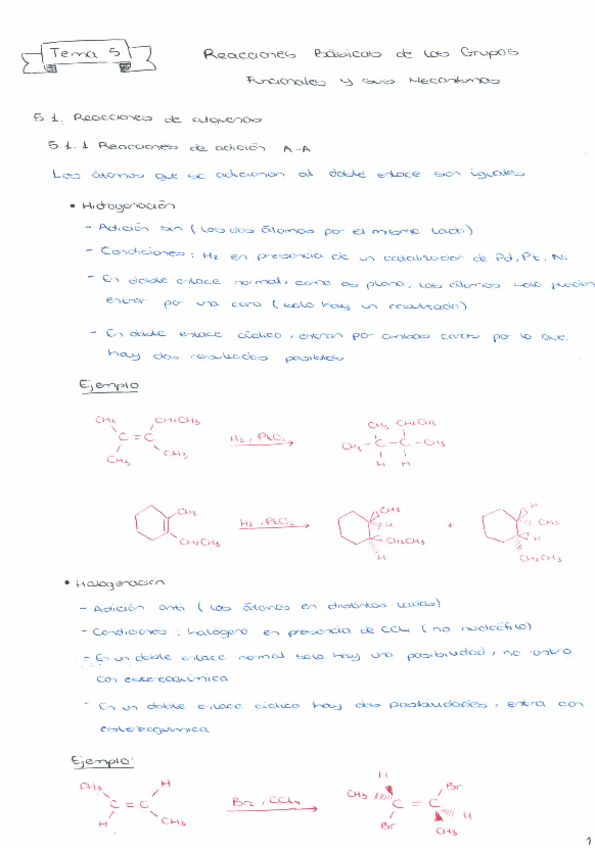 Tema 5
Reacciones Básicas de los Grupos
Funcionales y sus Mecanismos
5.1. Reacciones de alquenos
5.1.1 Reacciones de adición A-A
Los átomos que se adicionan al doble enlace son iguales
• Hidrogenación
- Adición sin (los dos átomos por el mismo lado)
- Condiciones: H2 en presencia de un catalizador de Pd, Pt, Ni
- En doble enlace normal, como es plano, los átomos solo pueden
entrar por una cara (solo hay un resultado)
- En doble enlace cíclico, entran por ambas caras por lo que
hay dos resultados posibles
Ejemplo
CH3 CH2CH3
C = C
CH3 CH3
H2, PtO2
CH3 CH2CH3
CH3 - C - C - CH3
H H
CH3
CH2CH3
H2, PtO2
CH3
H
CH2CH3
H
+
H
CH3
H
CH2CH3
• Halogenación
- Adición anti (los átomos en distintos lados)
- Condiciones: halógeno en presencia de CCl4 (no nucleófilo)
- En un doble enlace normal solo hay una posibilidad, no entro
con estereoquímica
- En un doble enlace cíclico hay dos posibilidades, entra con
estereoquímica
Ejemplo:
CH3 H
C = C
H CH3
Br2, CCl4
H
CH3 Br
C = C
Br H
CH3
1